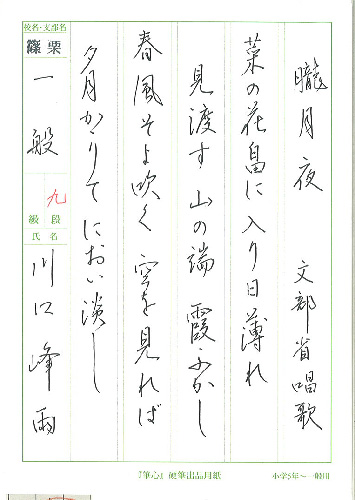 朧月夜 文部省唱歌
菜の花畠に入り日薄れ
見渡す山の端霞ふかし
春風そよ吹く空を見れば
夕月かゝりてにおい淡し
校名・支部名
篠栗
一般
九
級段
氏名
川口峰雨
『筆心』硬筆出品用紙
小学5年~一般用